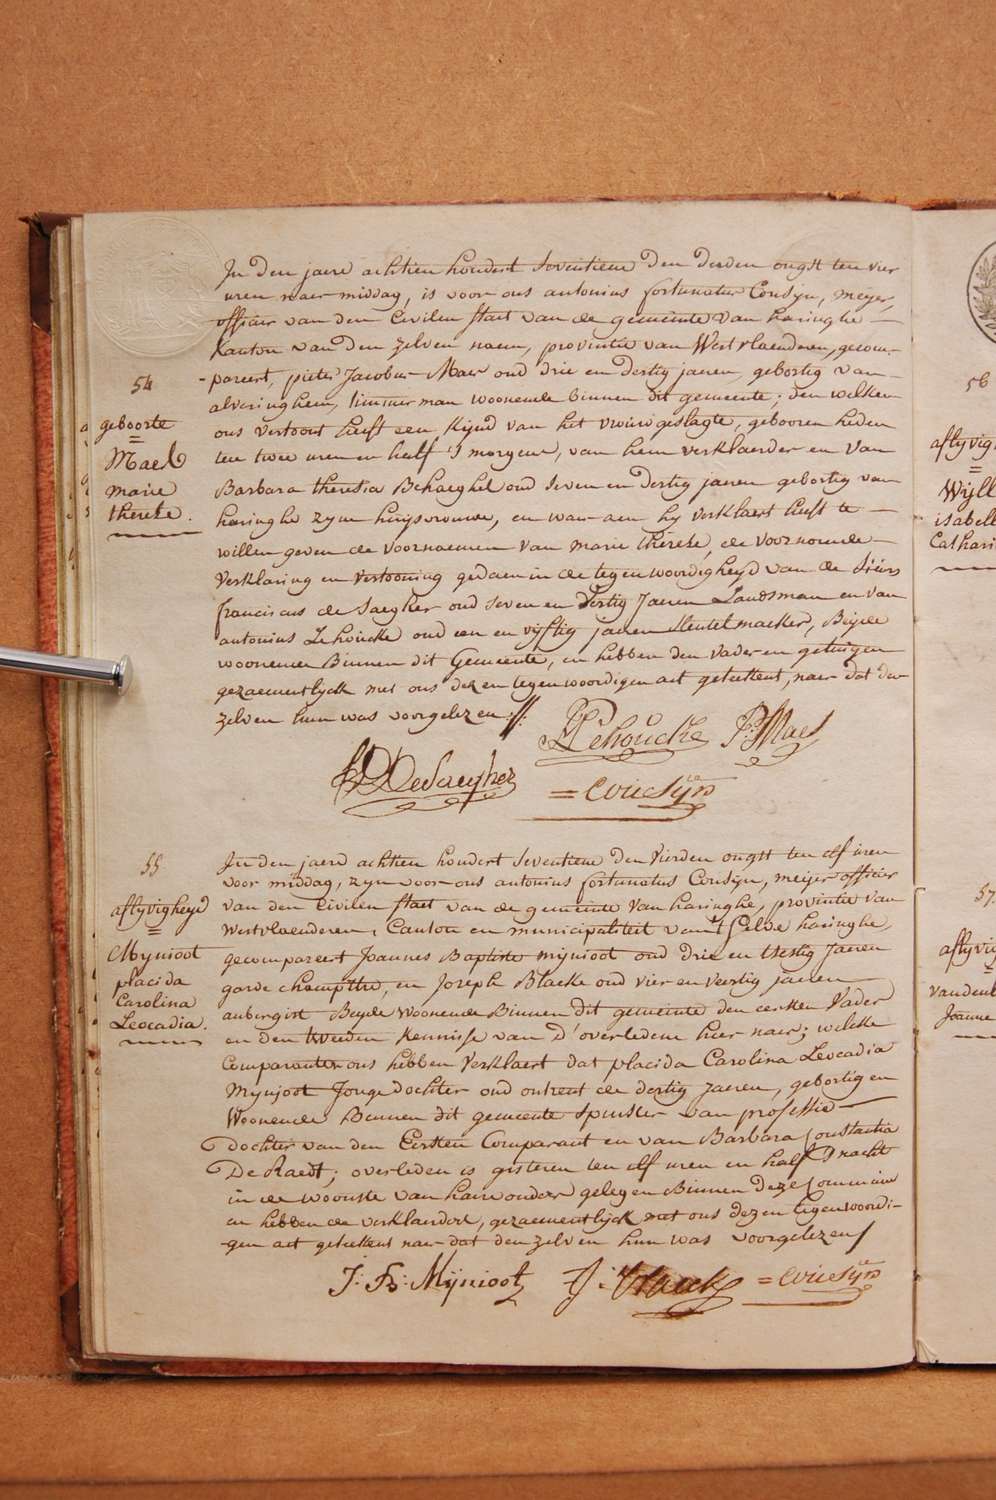 54
geboorte
=
Maes
marie
therese.
In den jaere achtien hondert seventiene den derden ougst ten vier
uren naer middag, is voor ons antonius fortunatus Cousijn, meijer,
officier van den Civilen staet van de gemeente van haringhe —
Kanton van den zelven naem, provintie van Westvlaenderen, gecom-
-pareert, pieter Jacobus Maes oud drie en dertig jaeren, gebortig van
alveringhem, timmerman woonende binnen dit gemeente; den welken
ons vertoont heeft een Kijnd van het vrouwgeslagte, gebooren heden
ten twee uren en half 's morgens, van hem verklaerder en van
Barbara theresia Behaeghel oud seven en dertig jaeren gebortig van
haringhe zyne huijsvrouwe, en waer aen hy verklaert heeft te —
willen geven de voornaemen van marie therese, de voornoemde —
Verklaring en vertooning gedaen in de tegenwoordigheyd van de Siurs
franciscus de Saegher oud seven en dertig Jaeren Landsman en van
antonius Lehoucke oud een en vyftig jaeren sleutelmaeker, Beijde
woonende Binnen dit Gemeente, en hebben den vader en getuigen
gezaementlijck met ons dezen tegenwoordigen act geteekent, naer dat den
zelven hun was voorgelezen //:
Lehoucke P: J Maes
F D Desaegher
= Cousyn
55
aflyvigheyd
=
Mynioot
placida
Carolina
Leocadia.
In den jaere achtien hondert seventiene den Vierden ougst ten elf uren
voor middag, zyn voor ons antonius fortunatus Cousijn, meijer officier
van den Civilen staet van de gemeente van haringhe, provintie van
Westvlaenderen, Canton en municipaliteit van 't selve haringhe,
gecompareert Joannes Baptiste mynioot oud drie en tsestig Jaeren
garde champetre, en Joseph Blacke oud vier en veertig jaeren
aubergist Beijde Woonende Binnen dit gemeente den eersten Vader
en den tweeden Kennisse van d'overledene hier naer; welcke
Comparanten ons hebben Verklaert dat placida Carolina Leocadia
Mynjoot Jonge dochter oud ontrent de dertig Jaeren, gebortig en
Woonende Binnen dit gemeente Spinster van professie —
Dochter van den Eersten Comparant en van Barbara Constantia
De Raedt; overleden is gisteren ten elf uren en half 's nachts
in de woonste van haere ouders gelegen Binnen deze Commune
en hebben de verklaerders, gezaementlijck met ons dezen tegenwoordi-
-gen act geteekent naer dat den zelven hun was voorgelezen /
J: B: Mijnioot J: Blacke = Cousyn
56
aflyvig
=
Wyll
isabell
Cathari
57.
aflyvig
=
Vandenb
Joanne